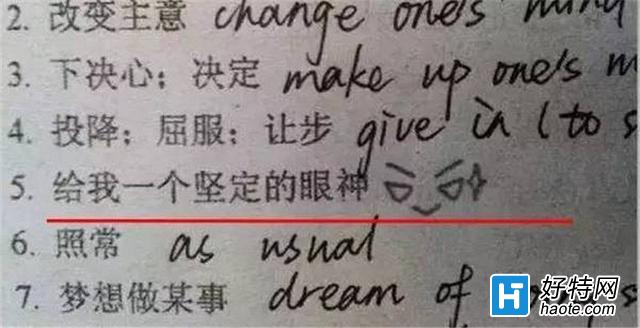 2. 改变主意 change one's mind
3. 下决心；决定 make up one's m
4. 投降；屈服；让步 give in (to s
5. 给我一个坚定的眼神
6. 照常 as usual
7. 梦想做某事 dream of
好特网
haote.com